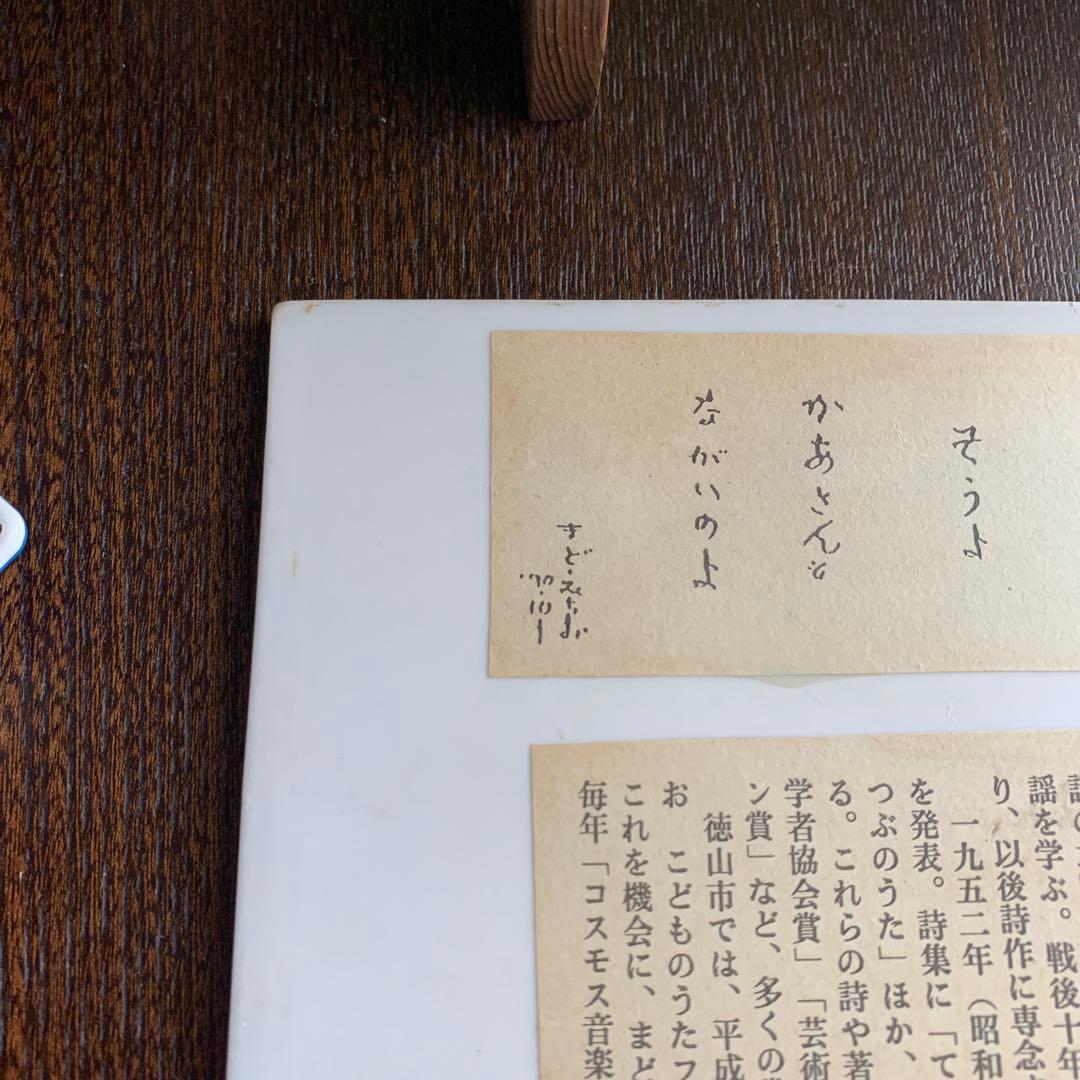 そうよ
かあさんも
ながいのよ
まど・みちお
謡を学ぶ。戦後十年
り、以後詩作に専念
一九五二年（昭和
を発表。詩集に「て
つぶのうた」ほか、
る。これらの詩や著
学者協会賞」「芸術
ン賞」など、多くの
徳山市では、平成
お　こどものうたフ
これを機会に、まど
毎年「コスモス音楽